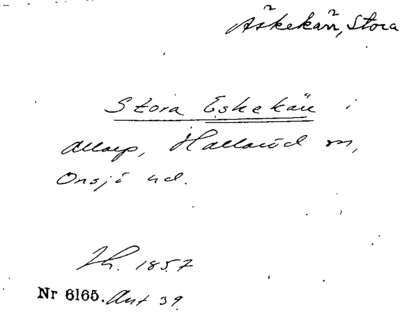 Äskekärr, Stora
Stora Eskekärr i
Allarp, Hallaröd sn,
Onsjö hd.
Lh. 1857
Nr 6165. Ant 39.